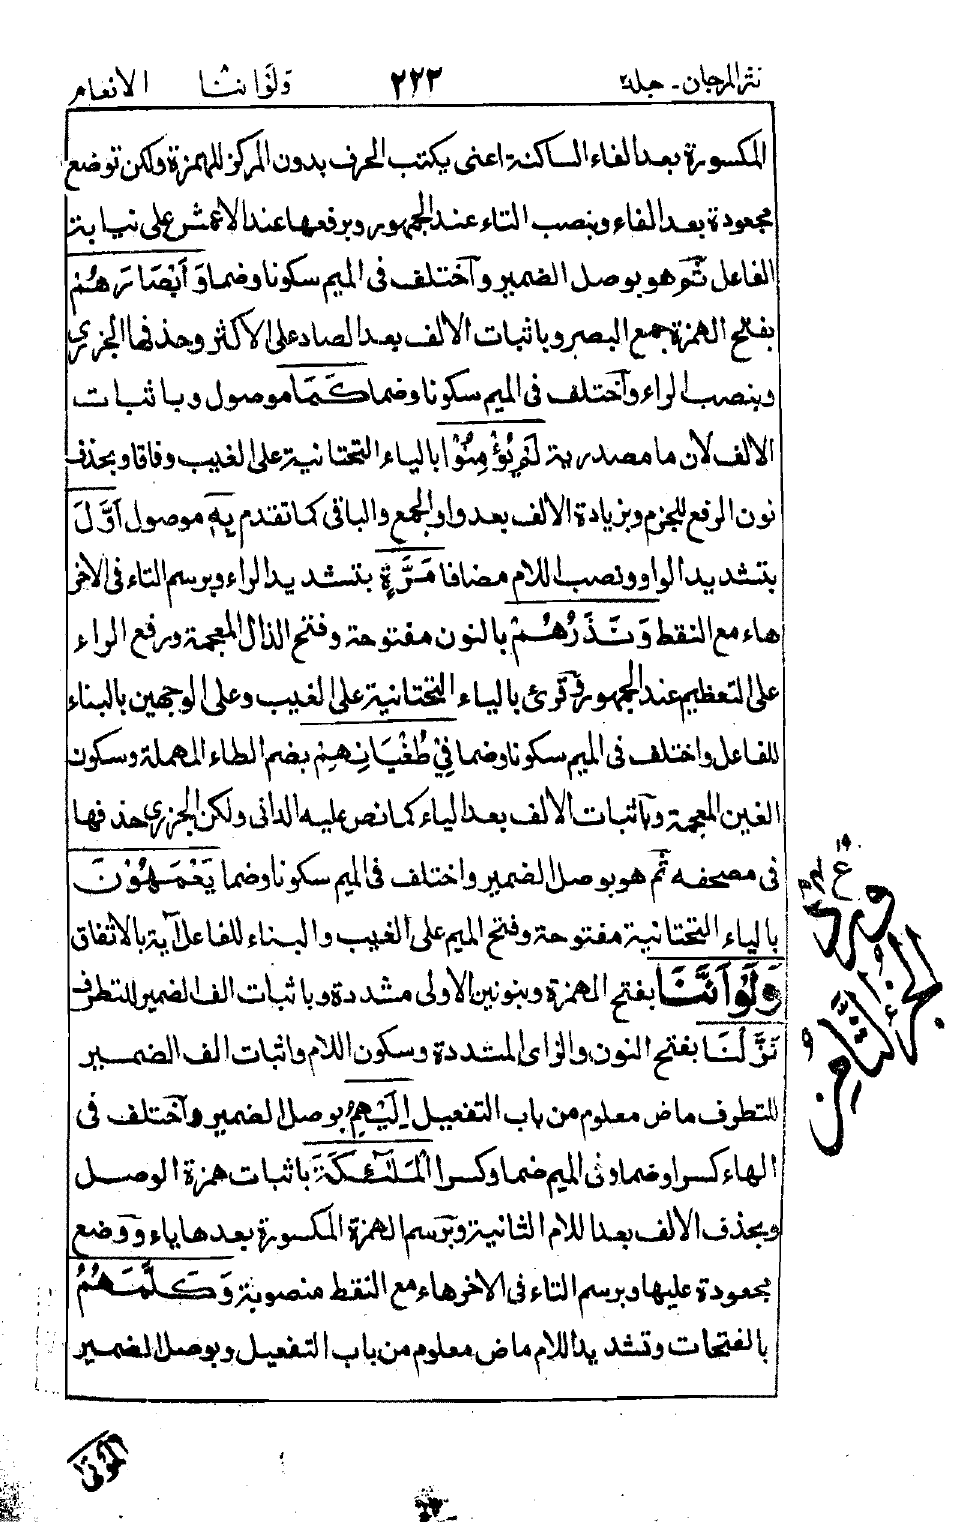 نثر المرجان - جلد۲ ۲۲۳ وَلَوْ اننا الانعام
المكسورة بعد الفاء الساكنة اعنى يكتب الحرف بدون المركز للهمزة ولكن توضع
مجعودة بعد الفاء وبنصب التاء عند الجمهور وبرفعها عند الاعمش على نيابة
الفاعل ثم هو بوصل الضمير واختلف فى الميم سكونا وضما وَاَبْصَارَهُمْ
بفتح الهمزة جمع البصر وباثبات الالف بعد الصاد على الاكثر وحذفها الجزرى
وبنصب الراء واختلف فى الميم سكونا وضما كَمَا موصول وباثبات
الالف لان ما مصدرية لَمْ يُؤْمِنُوْا بالياء التحتانية على الغيب وفاقا وبحذف
نون الرفع للجزم وبزيادة الالف بعد واو الجمع والباقى كما تقدم بِهٖ موصول اَوَّلَ
بتشديد الواو ونصب اللام مضافا مَرَّةٍ بتشديد الراء وبرسم التاء فى الاخر
هاء مع النقط وَنَذَرُهُمْ بالنون مفتوحة وفتح الذال المعجمة ورفع الراء
على التعظيم عند الجمهور وقرئ بالياء التحتانية على الغيب وعلى الوجهين بالبناء
للفاعل واختلف فى الميم سكونا وضما فِيْ طُغْيَانِهِمْ بضم الطاء المهملة وسكون
الغين المعجمة وباثبات الالف بعد الياء كما نص عليه الدانى ولكن الجزرى حذفها
فى مصحفه ثم هو بوصل الضمير واختلف فى الميم سكونا وضما يَعْمَهُوْنَ
بالياء التحتانية مفتوحة وفتح الميم على الغيب والبناء للفاعل آية بالاتفاق
وَلَوْ اَنَّنَا بفتح الهمزة وبنونين الاولى مشددة وباثبات الف الضمير للتطرف
نَزَّلْنَا بفتح النون والزاى المشددة وسكون اللام واثبات الف الضمير
للتطرف ماض معلوم من باب التفعيل اِلَيْهِمُ بوصل الضمير واختلف فى
الهاء كسرا وضما وفى الميم ضما وكسرا الْمَلٰٓئِكَةَ باثبات همزة الوصل
وبحذف الالف بعد اللام الثانية وبرسم الهمزة المكسورة بعدها ياء ووضع
مجعودة عليها وبرسم التاء فى الاخر هاء مع النقط منصوبة وَكَلَّمَهُمُ
بالفتحات وتشديد اللام ماض معلوم من باب التفعيل وبوصل الضمير
۱۹
ع
الجزء
الثامن
الموتى